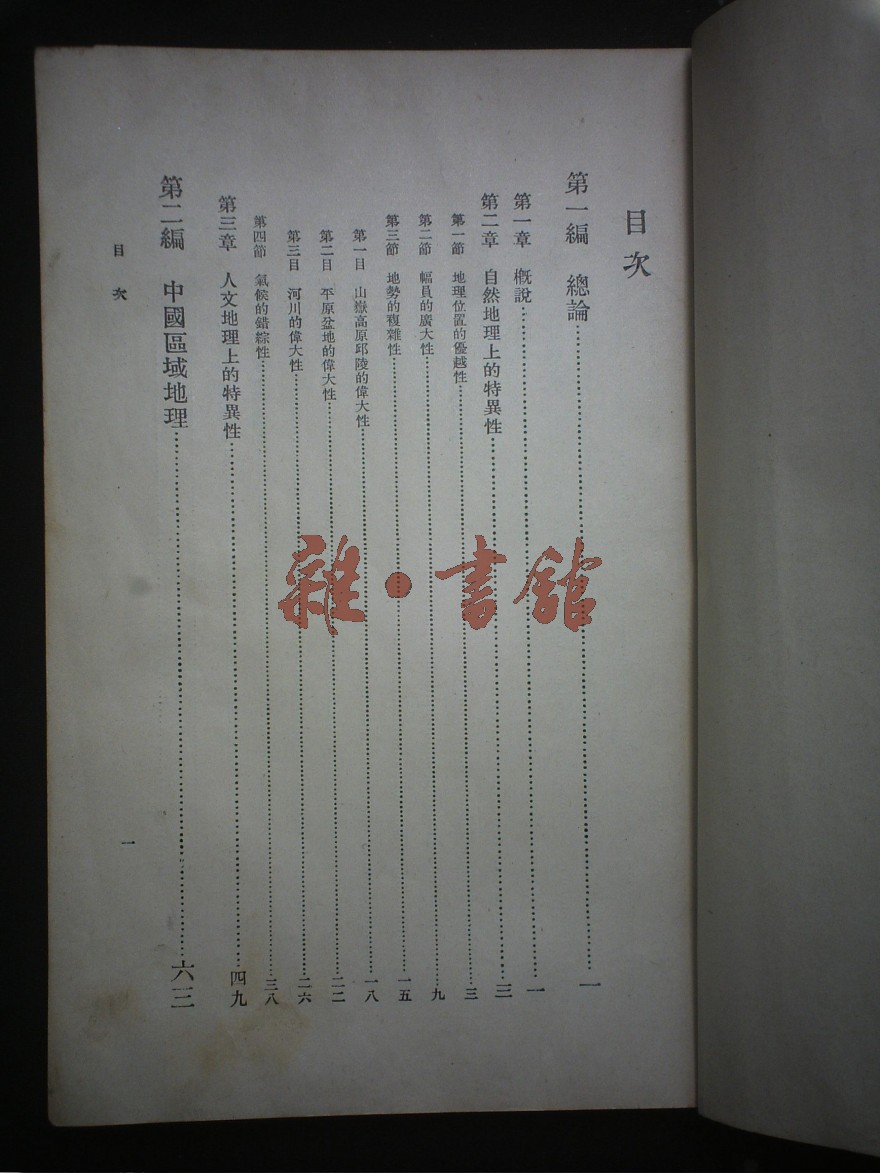 目次
第一編　總論……一
第一章　概說……一
第二章　自然地理上的特異性……三
第一節　地理位置的優越性……三
第二節　幅員的廣大性……九
第三節　地勢的複雜性……一五
第一目　山嶽高原邱陵的偉大性……一八
第二目　平原盆地的偉大性……二二
第三目　河川的偉大性……二六
第四節　氣候的錯綜性……三八
第三章　人文地理上的特異性……四九
第二編　中國區域地理……六三
目次
一
雜·書館